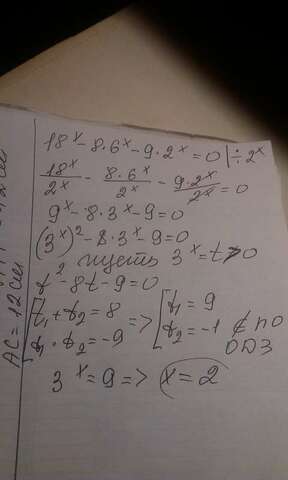 18ˣ - 8·6ˣ - 9·2ˣ = 0 | ÷ 2ˣ
18ˣ/2ˣ - 8·6ˣ/2ˣ - 9·2ˣ/2ˣ = 0
9ˣ - 8·3ˣ - 9 = 0
(3ˣ)² - 8·3ˣ - 9 = 0
пусть 3ˣ = t > 0
t² - 8t - 9 = 0
[t₁ + t₂ = 8 => [t₁ = 9
t₁ · t₂ = -9 t₂ = -1 ∉ по ОДЗ
3ˣ = 9 => x = 2
AC = 12 см